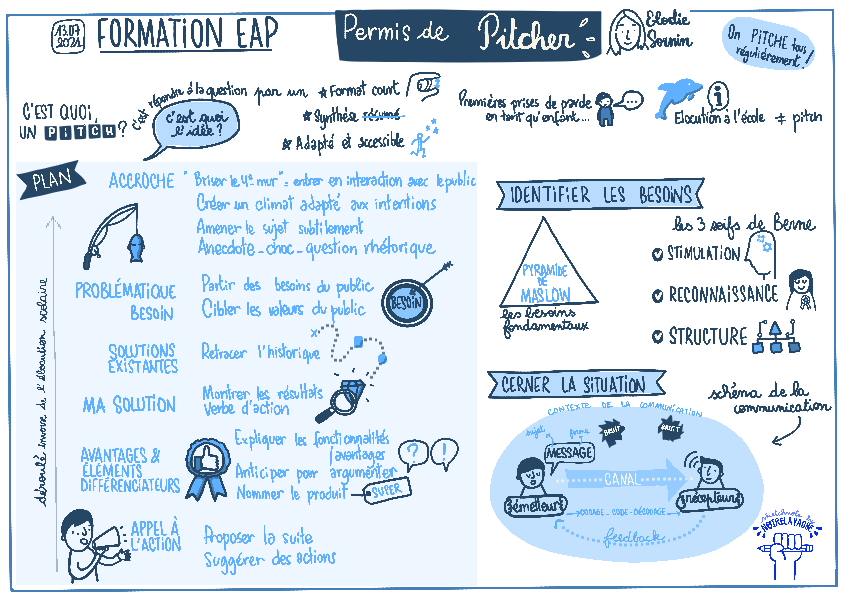 13.07
2021
FORMATION EAP
Permis de Pitcher
Elodie
Sornin
On PITCHE tous
régulièrement !
C'EST QUOI,
UN PITCH ?
C'est répondre à la question par un
c'est quoi
l'idée ?
Format court
Synthèse résumé
Adapté et accessible
Premières prises de parole
en tant qu'enfant...
Elocution à l'école ≠ pitch
PLAN
déroulé inverse de l'élocution scolaire
ACCROCHE
"Briser le 4e mur" = entrer en interaction avec le public
Créer un climat adapté aux intentions
Amener le sujet subtilement
Anecdote_choc_question rhétorique
PROBLÉMATIQUE
BESOIN
Partir des besoins du public
Cibler les valeurs du public
BESOIN
SOLUTIONS
EXISTANTES
Retracer l'historique
MA SOLUTION
Montrer les résultats
Verbe d'action
AVANTAGES &
ÉLÉMENTS
DIFFÉRENCIATEURS
Expliquer les fonctionnalités
/avantages
Anticiper pour argumenter
? !
Nommer le produit
SUPER
APPEL À
L'ACTION
Proposer la suite
Suggérer des actions
IDENTIFIER LES BESOINS
PYRAMIDE
DE
MASLOW
les besoins
fondamentaux
les 3 soifs de Berne
STIMULATION
RECONNAISSANCE
STRUCTURE
CERNER LA SITUATION
schéma de la
communication
CONTEXTE DE LA COMMUNICATION
sujet
forme
BRUIT
MESSAGE
CANAL
émetteur
récepteur
CODAGE_CODE_DÉCODAGE
feedback
sketchnote by
NOTRELAYAONE